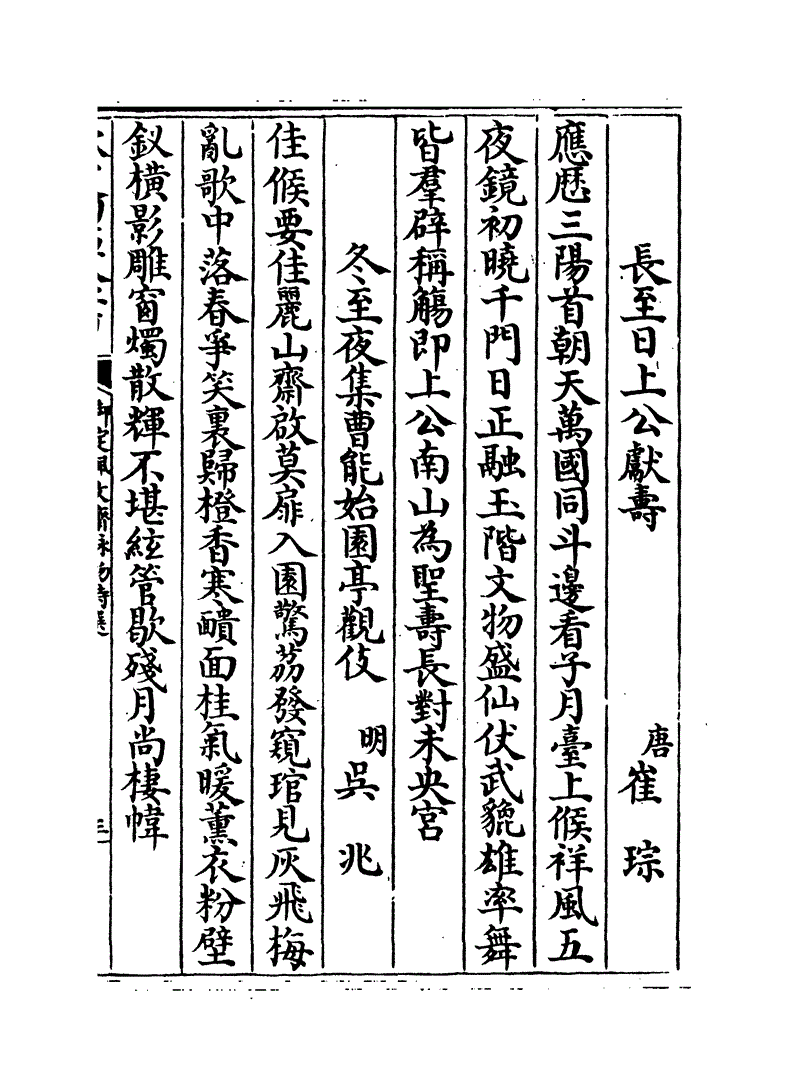 長至日上公獻壽　唐崔琮
應厯三陽首朝天萬國同斗邊看子月臺上候祥風五
夜鏡初曉千門日正融玉階文物盛仙仗武貔雄率舞
皆羣辟稱觴即上公南山為聖壽長對未央宮
冬至夜集曹能始園亭觀伎　明吳兆
佳候要佳麗山齋啟莫扉入園驚荔發窺琯見灰飛梅
亂歌中落春爭笑裏歸橙香寒醺面桂氣暖薰衣粉壁
釵橫影雕窗燭散輝不堪絃管歇殘月尚棲幃
御定佩文齋詠物詩選
三